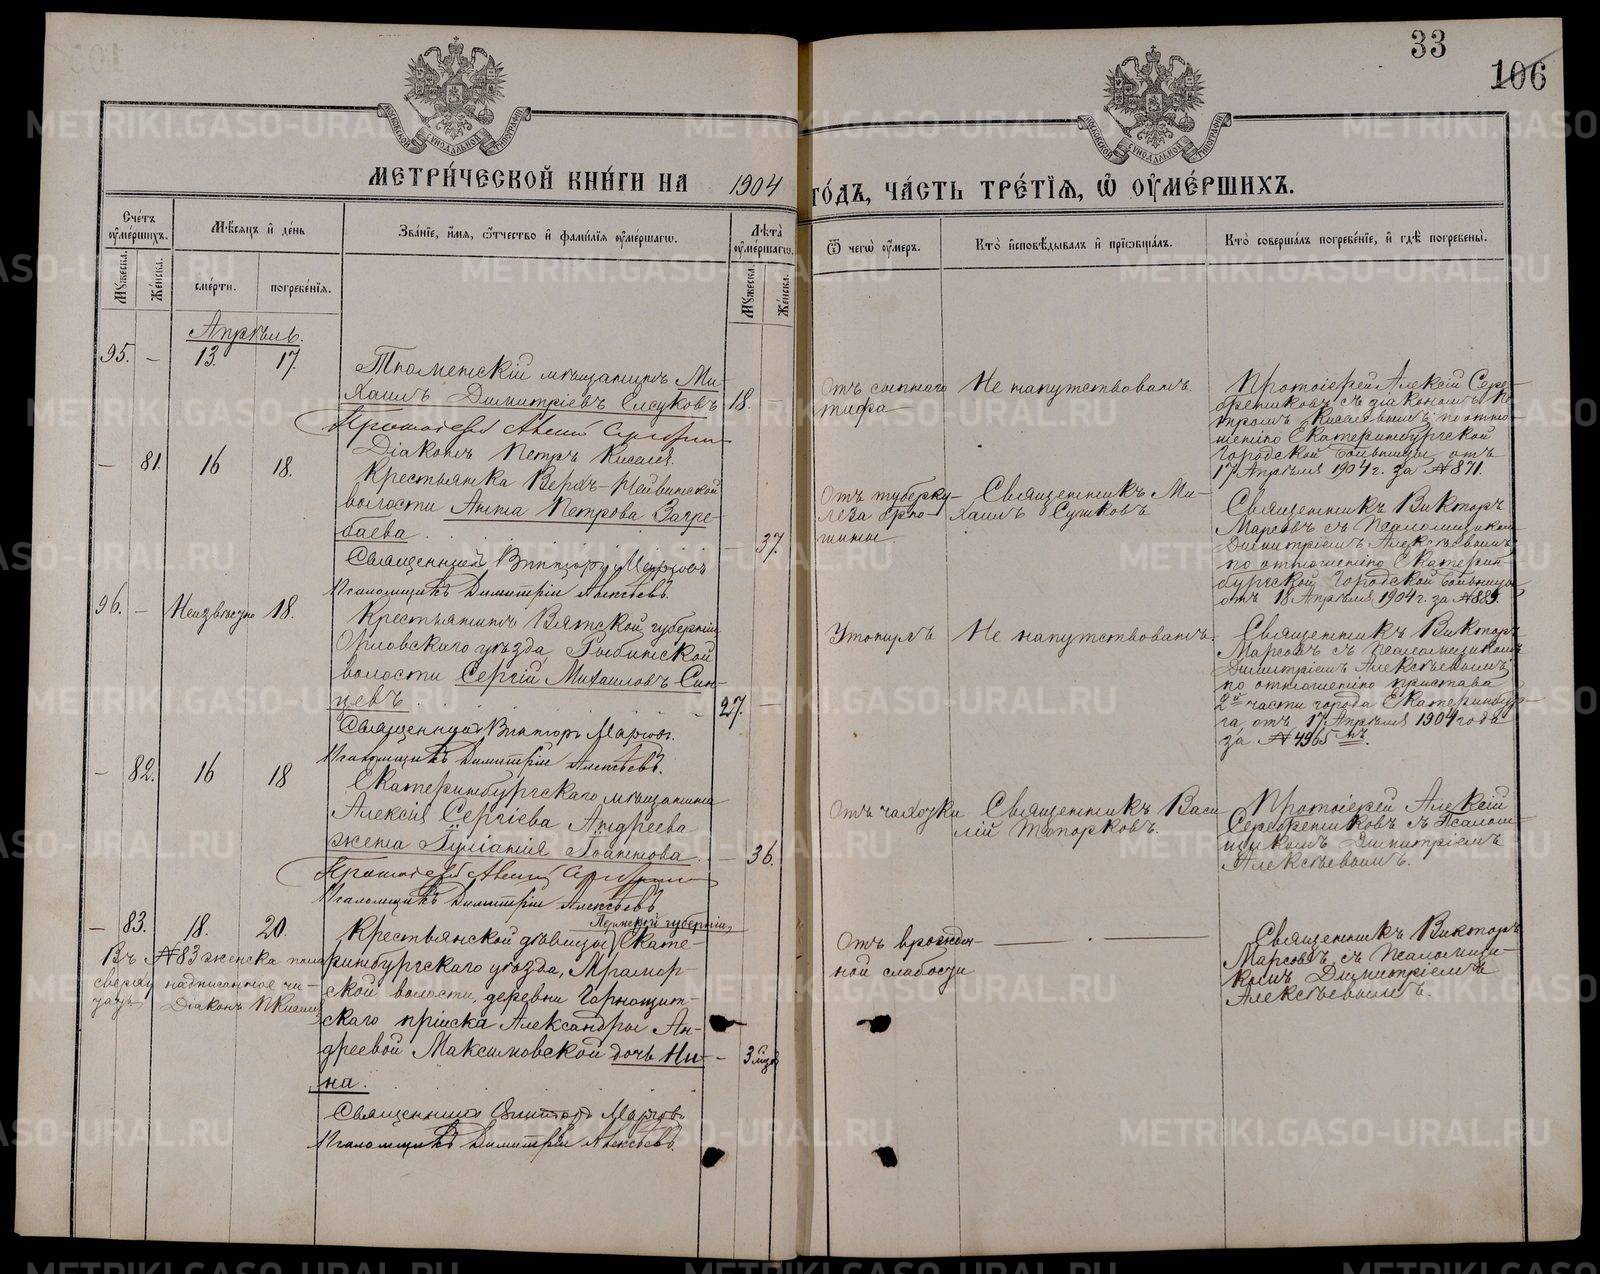 33
106
МЕТРИ́ЧЕСКОЙ КНИ́ГИ НА 1904 ГО́ДЪ, ЧА́СТЬ ТРЕ́ТІѦ, Ѡ ОУМЕ́РШИХЪ.
Сче́тъ оуме́ршихъ.
Мꙋ́жеска.
Же́нска.
Мѣ́сяцъ и де́нь
сме́рти.
погребе́нїя.
Зва́нїе, и́мя, о́тчество и фами́лїя оуме́ршагѡ.
Лѣ́та оуме́ршагѡ.
Мꙋ́жеска.
Же́нска.
Ѿ чегѡ̀ оу́меръ.
Кто̀ исповѣ́дывалъ и прїѡбща́лъ.
Кто̀ соверша́лъ погребе́нїе, и гдѣ̀ погребены̀.
Апрѣль.
95. – 13. 17.
Тюменскій мѣщанинъ Ми-
хаилъ Димитріевъ Елсуковъ 18. –
Діаконъ Петръ Киселевъ.
Отъ сыпнаго
тифа
Не напутствованъ.
Протоіерей Алексій Сере-
бренниковъ съ діакономъ Пе-
тромъ Киселевымъ; по отно-
шенію Екатеринбургской
Городской больницы отъ
17 Апрѣля 1904 г. за № 871.
– 81. 16 18.
Крестьянка Верхъ-Нейвинской
волости Анна Петрова Загре-
баева. – 37.
Священникъ Викторъ Марсовъ
Псаломщикъ Димитрій Алексѣевъ.
Отъ туберку-
леза брю-
шины
Священникъ Ми-
хаилъ Сушковъ
Священникъ Викторъ
Марсовъ съ Псаломщикомъ
Димитріемъ Алексѣевымъ
по отношенію Екатерин-
бургской Городской больницы
отъ 18 Апрѣля 1904 г. за № 889.
96. – Неизвѣстно 18.
Крестьянинъ Вятской губерніи
Орловскаго уѣзда,
волости Сергій Михаиловъ Син-
цевъ. 27. –
Священникъ Викторъ Марсовъ.
Псаломщикъ Димитрій Алексѣевъ.
Утонулъ
Не напутствованъ.
Священникъ Викторъ
Марсовъ съ псаломщикомъ
Димитріемъ Алексѣевымъ;
по отношенію пристава
2й части города Екатеринбур-
га отъ 17 Апрѣля 1904 года
за № 4965
– 82. 16 18
Екатеринбургскаго мѣщанина
Алексія Сергіева Андреева
жена Іуліанія Іоаннова. – 36.
Псаломщикъ Димитрій Алексѣевъ
Отъ чахотки
Священникъ Васи
лій Топорковъ.
Протоіерей Алексій
Серебренниковъ съ Псалом-
щикомъ Димитріемъ
Алексѣевымъ.
– 83. 18. 20.
Пермской губерніи,
Крестьянской дѣвицы Екате-
ринбургскаго уѣзда, Мрамор-
ской волости, деревни Горнощит-
скаго пріиска Александры Ан-
дреевой Максимовской дочь Ни-
на. – 3 мѣсяц
Священникъ Викторъ Марсовъ.
Псаломщикъ Димитрій Алексѣевъ.
Въ № 83 женска пола
сверху надписанное чи-
тать. Діаконъ П Киселевъ
Отъ врожден-
ной слабости
Священникъ Викторъ
Марсовъ съ Псаломщи-
комъ Димитріемъ
Алексѣевымъ.
METRIKI.GASO-URAL.RU